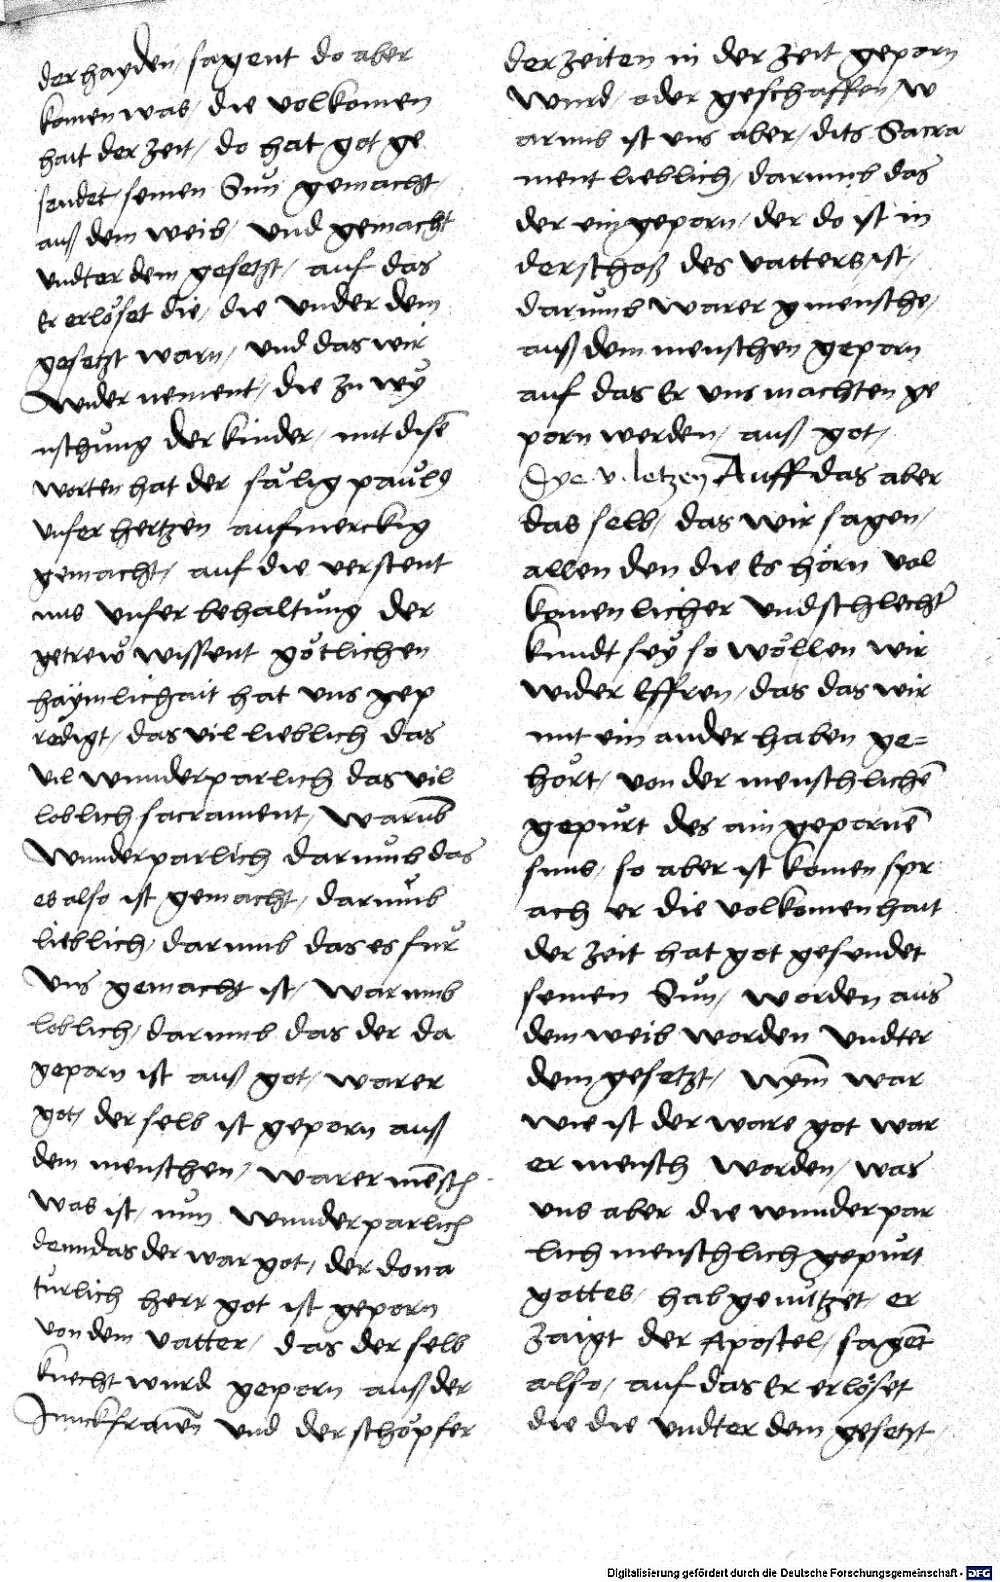 der hayden / sagent do aber
komen was / die volkomen
hait der zeit / do hat got ge
sendet seinen Sůn gemacht /
auß dem weib / vnd gemacht
vndter dem gesetzt / auf das
Er erlöset die / die vnder dem
gesetzt warn / vnd das wir
wider nement / die zu wÿ
nschůng der kinder / mit disē
worten hat der sälig paulꝰ
vnser hertzen aufmerckig
gemacht / auf die verstent
nus vnser behaltůng der
getrew wissent götlichen
haÿmlichait hat vns gep
redigt / das vil lieblich das
vil wunderparlich das vil
loblich sacrament / warūb
wunderparlich darumb das
es also ist gemacht / darumb
lieblich / darumb das es fur
vns gemacht ist / warumb
loblich / darumb das der da
geporn ist auß got / warer
got / der selb ist geporn auß
dem menschen / warer mēsch
was ist / nun wunderparlich
denn das der war got / der do na
turlich herr got ist geporn
von dem vatter / das der selb
knecht wurd geporn auß der
Junckfrawēn vnd der schöpfer
der zeiten in der zeit geporn
wurd / oder geschaffen / w
arumb ist vns aber / dits Sacra
ment lieblich / darumb das
der ein geporn / der do ist in
der schoß des vatters ist /
darumb warer gmensche /
auß dem menschen geporn
auf das Er vns machten ge
porn werden / auß got /
Dye .v. letzen Auff das aber
das selb / das wir sagen /
allen den die Es hörn vol
komenlicher vnd schlechtˀ
kundt seÿ so wöllen wir
wider Effren / das das wir
mit ein ander haben ge=
hört / von der menschlichē
gepurt des ain gepornē
suns / so aber ist komen spr
ach er die volkomenhait
der zeit hat got gesendet
seinen Sůn / worden aus
dem weib worden vndter
dem gesetzt / wÿm war
wie ist der ware got war
er mensch worden / was
vns aber die wunderpar
lich menschlich gepurt
gottes / hab genutzet / er
zaigt der Apostel / sagēt
also / auf das Er erlöset
die die vndter dem gesetzt /
Digitalisierung gefördert durch die Deutsche Forschungsgemeinschaft - DFG